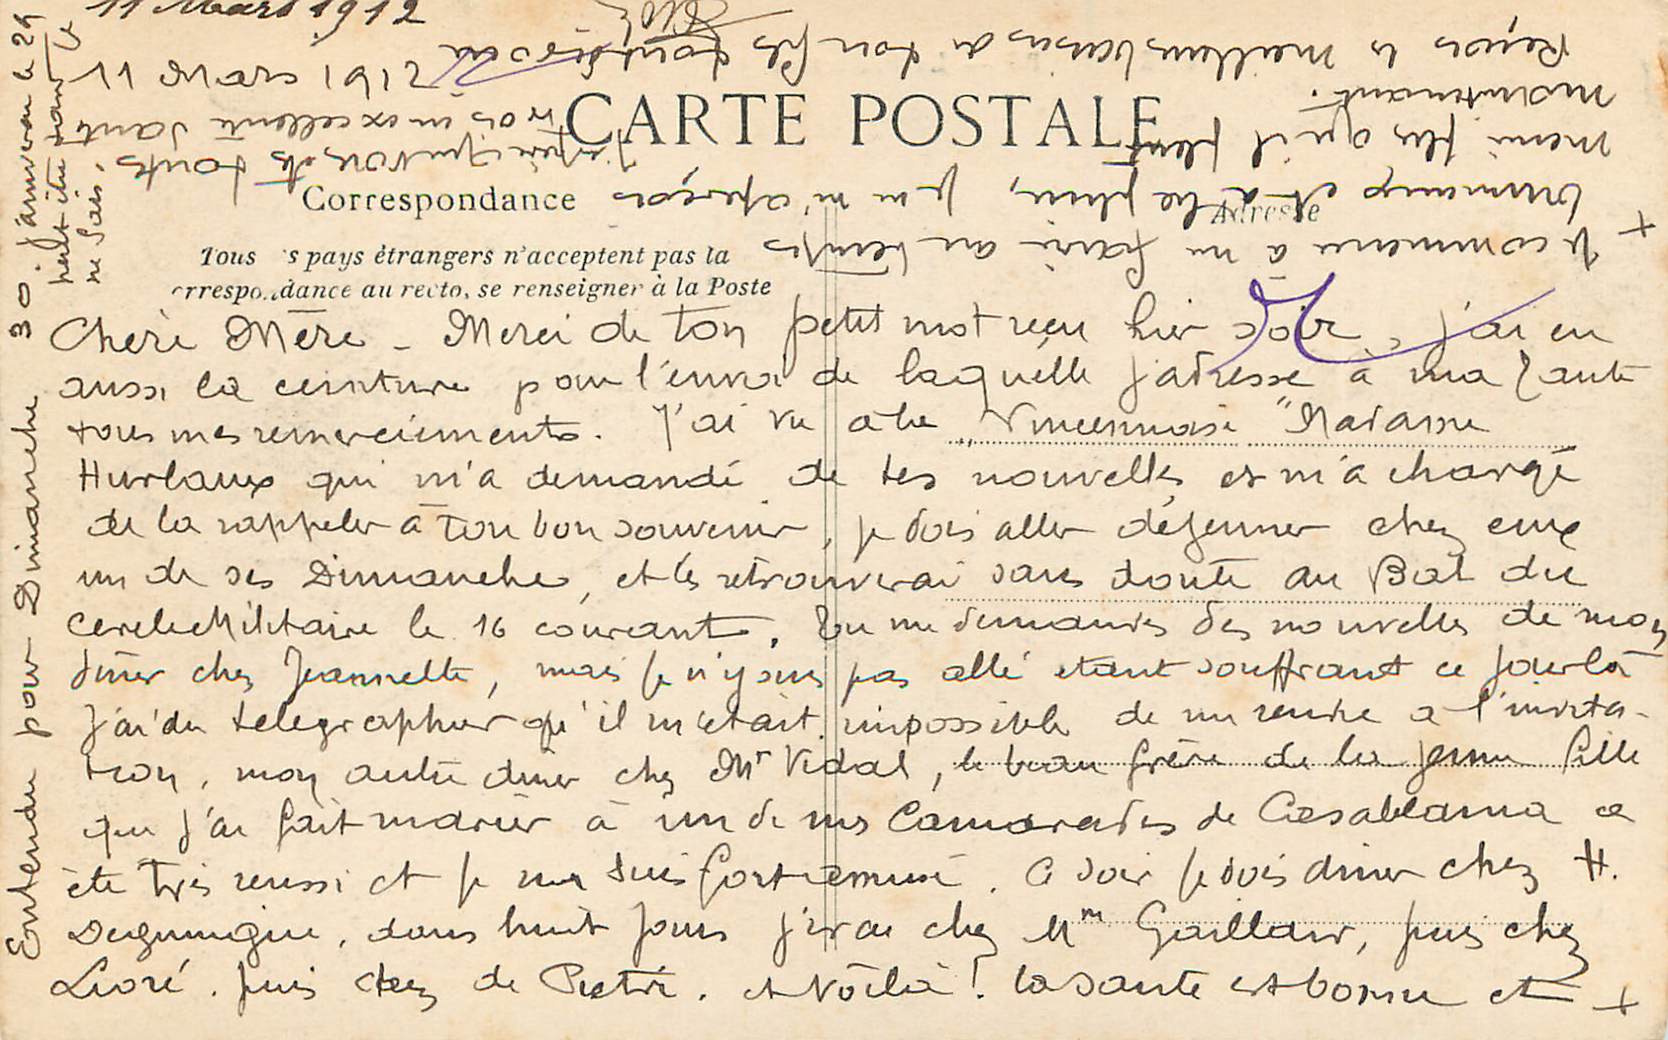 11 Mars 1912
11 Mars 1912
CARTE POSTALE
Correspondance
Adresse
Tous s pays étrangers n'acceptent pas la
rrespo dance au recto, se renseigner à la Poste
Chère Mère _ Merci de ton petit mot reçu hier soir, j'ai eu
aussi la ceinture pour l'envoi de laquelle j'adresse à ma Tante
tous mes remerciements. J'ai vu à la "Vincennoise" Madame
Hurlaux qui m'a demandé de tes nouvelles et m'a chargé
de la rappeler à ton bon souvenir, je dois aller déjeuner chez eux
un de ses Dimanche, et les retrouverai sans doute au Bal du
Cercle Militaire le 16 courant. Tu me demandes des nouvelles de mon
diner chez Jeannette, mais je n'y suis pas allé etant souffrant ce jour là
j'ai du telegraphier qu'il m'etait impossible de me rendre a l'invita-
tion, mon autre diner chez Mr Vidal, le beau frère de la jeune fille
que j'ai fait marier à un de mes Camarades de Casablanca a
été très reussi et je me suis fort amusé. Ce soir je dois diner chez H.
dans huit jours j'irai chez Mm Gaillard, puis chez
Lioré. puis chez de Pietri. et voilà! la santé est bonne et +
+ je commence à me faire au temps
brumeux et à la pluie, je ne m'aperçois
même plus qu'il pleut
maintenant.
Reçois les meilleurs baisers de ton fils
J'espère que vous êtes toutes
trois en excellente santé
Entendu pour Dimanche 30. j'arriverai le 29
peut être
ne sais,